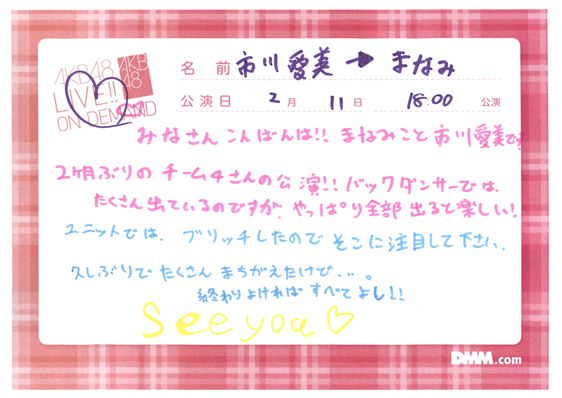 AKB48
LIVE!!
ON DEMAND
AKB
48
名前 市川愛美 → まなみ
公演日 2月 11日 18:00 公演
みなさんこんばんは!! まなみこと市川愛美です
2ヶ月ぶりのチーム4さんの公演!! バックダンサーでは、
たくさん出ているのですが、やっぱり全部出ると楽しい!
ユニットでは、ブリッヂしたのでそこに注目して下さい。
久しぶりでたくさんまちがえたけど…。
終わりよければすべてよし!!
See you ♡
DMM.com